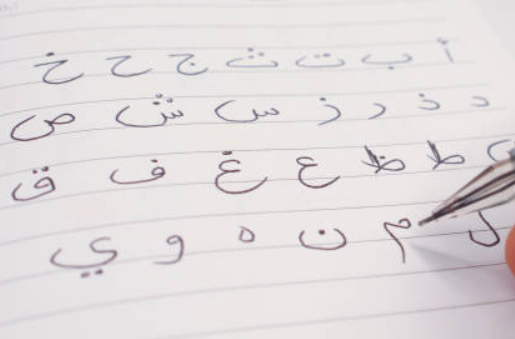 أ ب ت ث ج ح خ
د ذ ر ز س ش ص
ط ظ ع غ ف ق
ل م ن ه و ي